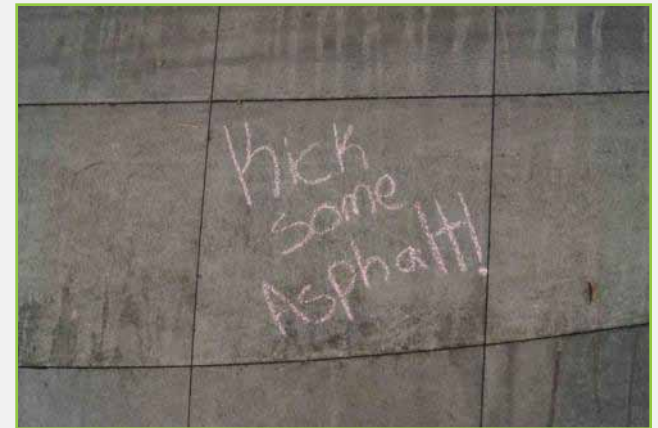 Kick
some
Asphalt!